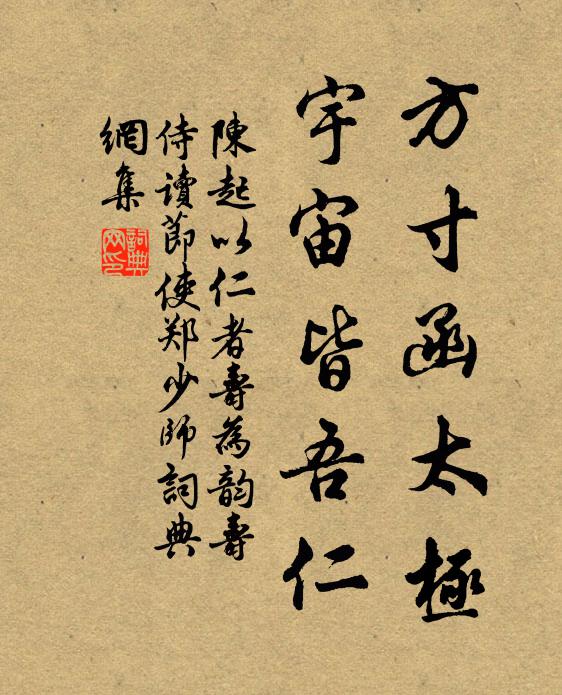 方寸函太極
宇宙皆吾仁
陳起以仁者壽為韵壽
侍讀節使郑少師詞典
網集
詞典网印